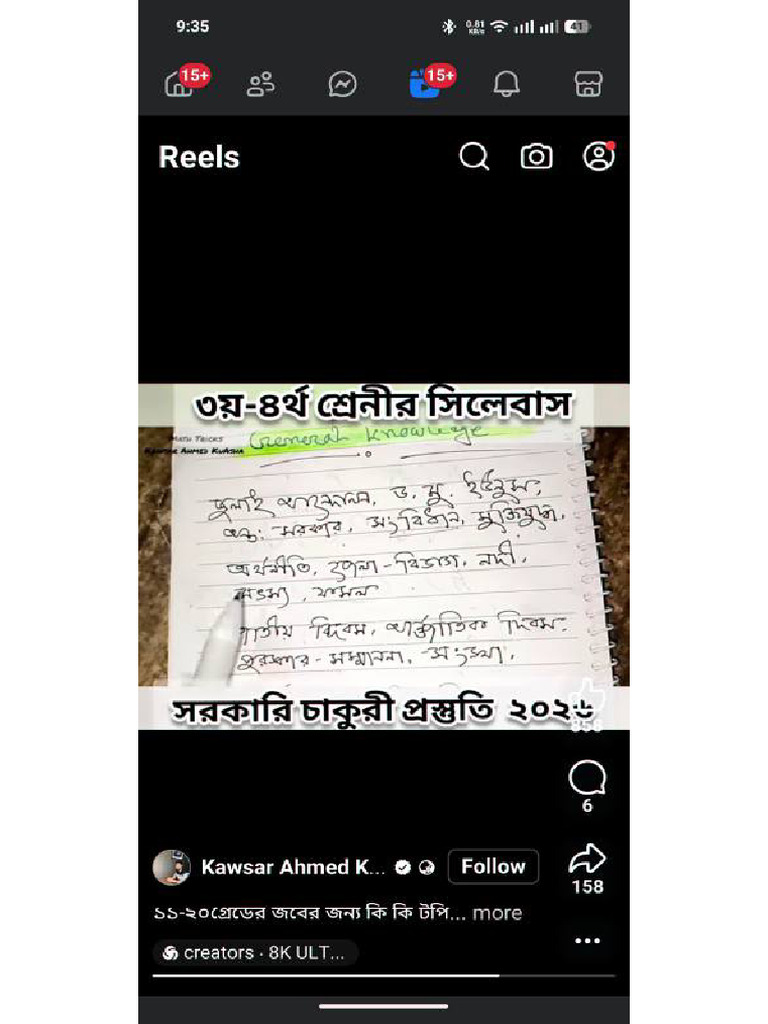 9:35
0.81 KB/s
41
15+
15+
Reels
৩য়-৪র্থ শ্রেনীর সিলেবাস
MATH TRICKS
KAWSAR AHMED KUASHA
General Knowledge
জুলাই আন্দোলন, ড. মু. ইউনূস,
অন্ত: সরকার, সংবিধান, মুক্তিযুদ্ধ,
অর্থনীতি, জেলা-বিভাগ, নদী,
মৎস্য, ফসল
জাতীয় দিবস, আর্ন্তজাতিক দিবস,
পুরস্কার-সম্মাননা, সংস্থা,
সরকারি চাকুরী প্রস্তুতি ২০২৬
858
6
Kawsar Ahmed K... Follow
158
১১-২০গ্রেডের জবের জন্য কি কি টপি... more
creators · 8K ULT...